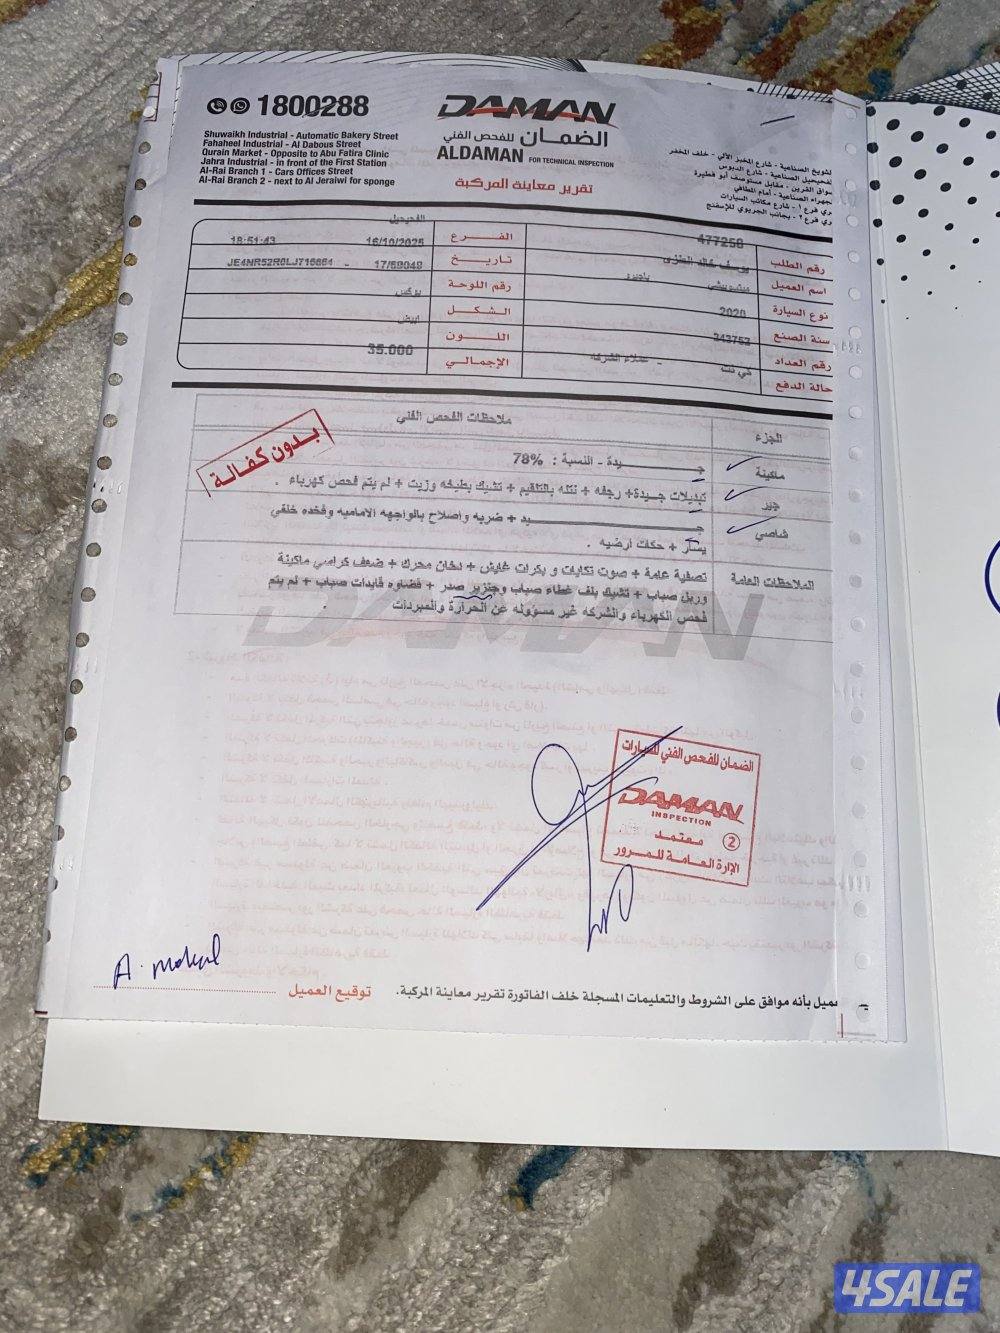 1800288
DAMAN
الضمان للفحص الفني
ALDAMAN FOR TECHNICAL INSPECTION
تقرير معاينة المركبة
Shuwaikh Industrial - Automatic Bakery Street
Fahaheel Industrial - Al Dabous Street
Qurain Market - Opposite to Abu Fatira Clinic
Jahra Industrial - in front of the First Station
Al-Rai Branch 1 - Cars Offices Street
Al-Rai Branch 2 - next to Al Jeraiwi for sponge
شويخ الصناعية - شارع المخبز الآلي - خلف المخفر
فحيحيل الصناعية - شارع الدبوس
سواق القرين - مقابل مستوصف أبو فطيرة
جهراء الصناعية - أمام المطافي
ري فرع ١ - شارع مكاتب السيارات
ري فرع ٢ - بجانب الجريوي للإسفنج
رقم الطلب 477258
الفرع الفحيحيل
اسم العميل يوسف خالد
تاريخ 16/10/2025 18:51:43
نوع السيارة ميتسوبيشي باجيرو
رقم اللوحة 17/59049 -
سنة الصنع 2020
الشكل بوكس
رقم العداد 243753
اللون ابيض
حالة الدفع كي نت - عملاء الشركه
الإجمالي 35.000
الجزء ملاحظات الفحص الفني
بدون كفالة
ماكينة جـيدة - النسبة : 78%
جير تبديلات جيدة+ رجفه + نتله بالتقيم + تشيك بطيخه وزيت + لم يتم فحص كهرباء .
شاصي جـيد + ضربه واصلاح بالواجهه الاماميه وفخده خلفي
يسار + حكات ارضيه .
الملاحظات العامة تصفية عامة + صوت تكايات و بكرات غايش + دخان محرك + ضعف كراسي ماكينة
وربل صباب + تشيك بلف غطاء صباب وجنزير صدر + فضاوه قايدات صباب + لم يتم
فحص الكهرباء والشركه غير مسؤوله عن الحرارة والمبردات .
DAMAN
الضمان للفحص الفني للسيارات
DAMAN
INSPECTION
معتمد ②
الإدارة العامة للمرور
ميل بأنه موافق على الشروط والتعليمات المسجلة خلف الفاتورة تقرير معاينة المركبة.
توقيع العميل
4SALE